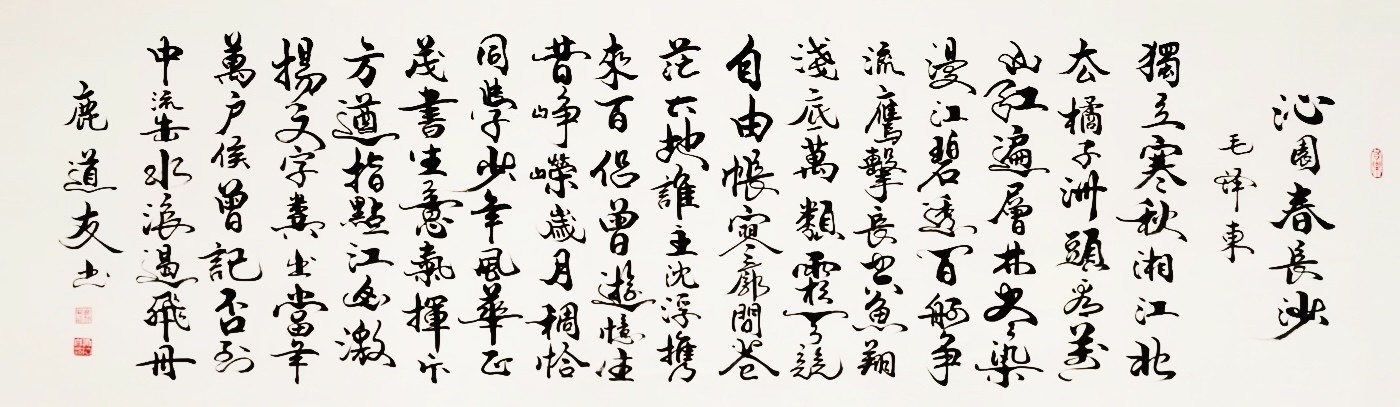 沁園春長沙
毛澤東
獨立寒秋湘江北
去橘子洲頭看萬
山紅遍層林盡染
漫江碧透百舸爭
流鷹擊長空魚翔
淺底萬類霜天競
自由悵寥廓問蒼
茫大地誰主沈浮攜
來百侶曾遊憶往
昔崢嶸歲月稠恰
同學少年風華正
茂書生意氣揮斥
方遒指點江山激
揚文字糞土當年
萬户侯曾記否到
中流擊水浪遏飛舟
鹿道友書